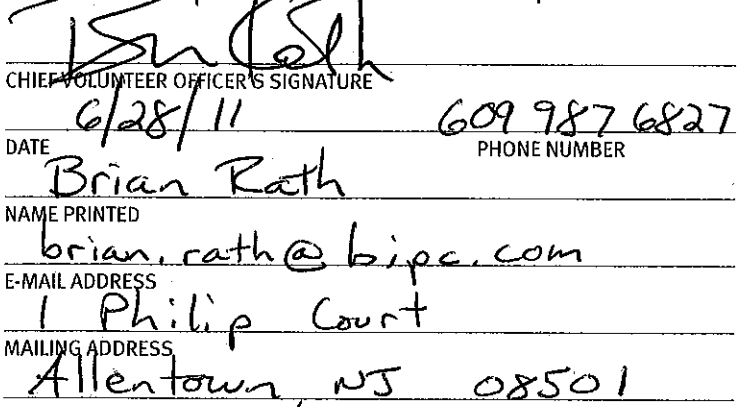 Brian Rath
CHIEF VOLUNTEER OFFICER'S SIGNATURE
6/28/11 609 987 6827
DATE PHONE NUMBER
Brian Rath
NAME PRINTED
brian.rath@bipc.com
E-MAIL ADDRESS
1 Philip Court
MAILING ADDRESS
Allentown, NJ 08501